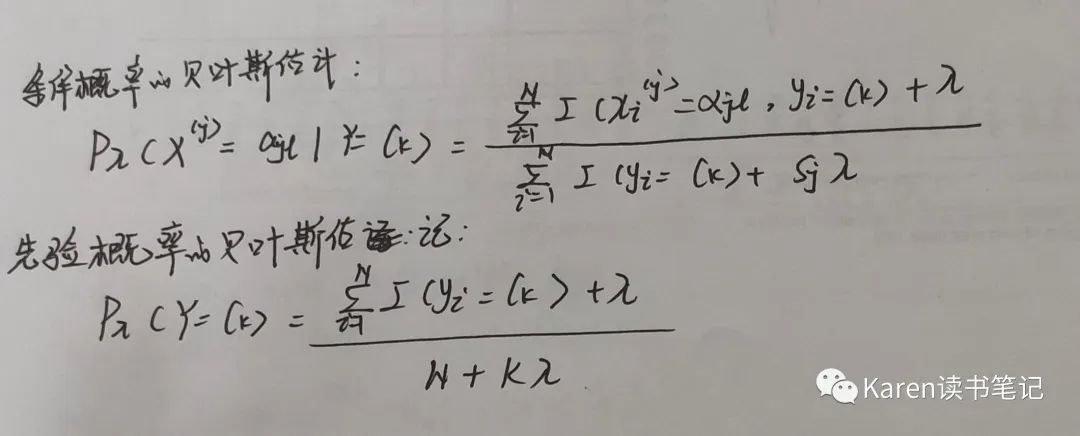 条件概率的贝叶斯估计：
Pλ(X^(j) = αjl | Y = Ck) = (∑_{i=1}^{N} I(xi^(j) = αjl, yi = Ck) + λ) / (∑_{i=1}^{N} I(yi = Ck) + Sjλ)
先验概率的贝叶斯估
Pλ(Y = Ck) = (∑_{i=1}^{N} I(yi = Ck) + λ) / (N + Kλ)
Karen读书笔记